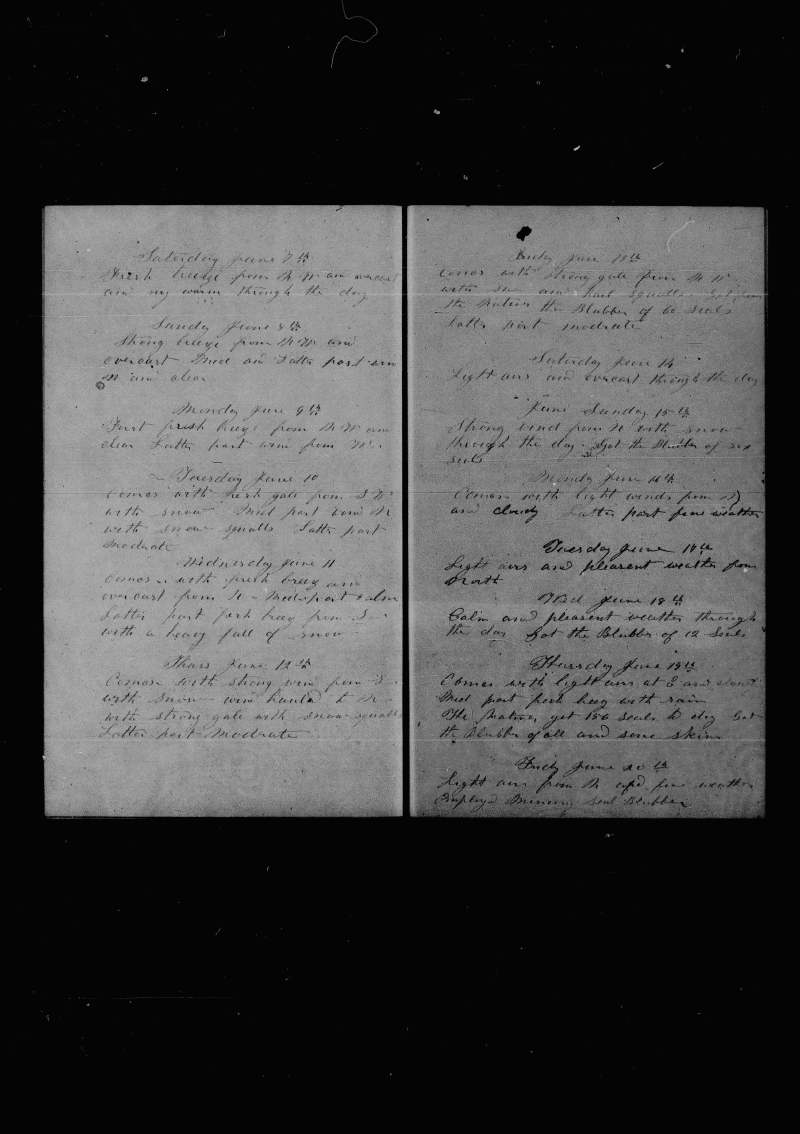 Saturday June 7th
Fresh breeze from N W and overcast
and very warm through the day
Sunday June 8th
Strong breeze from N W and
overcast Mid and Latter part wind
N and clear
Monday June 9th
First fresh breeze from N W and
clear Latter part wind from W
Tuesday June 10
Comes with fresh gale from S W
with snow Mid part wind N
with snow squalls Latter part
Modrate
Wednesday June 11
Comes with fresh breeze and
overcast from N Mid part calm
Latter part fresh breeze from S
with a heavy fall of snow
Thurs June 12th
Comes with strong wind from S
with snow wind hauled to N
with strong gale with snow squalls
Latter part Modrate
Friday June 13th
Comes with strong gale from N W
with snow and hail squalls Got from
the Natives the Blubber of 60 seals
Latter part modrate
Saturday June 14
Light airs and overcast through the day
June Sunday 15th
Strong wind from N with snow
through the day Got the Blubber of six
seals
Monday June 16th
Comes with light winds from
and cloudy Latter part fine weather
Tuesday June 17th
Light airs and pleasent weather from
North
Wed June 18th
Calm and pleasent weather through
the day Got the Blubber of 12 Seals
Thursday June 19th
Comes with light airs at E and
Mid part fresh breeze with rain
The Natives got 150 seals to day Got
the blubber of all and some skins
Friday June 20th
Light airs from N and fine weather
Employed Mincing seal Blubber